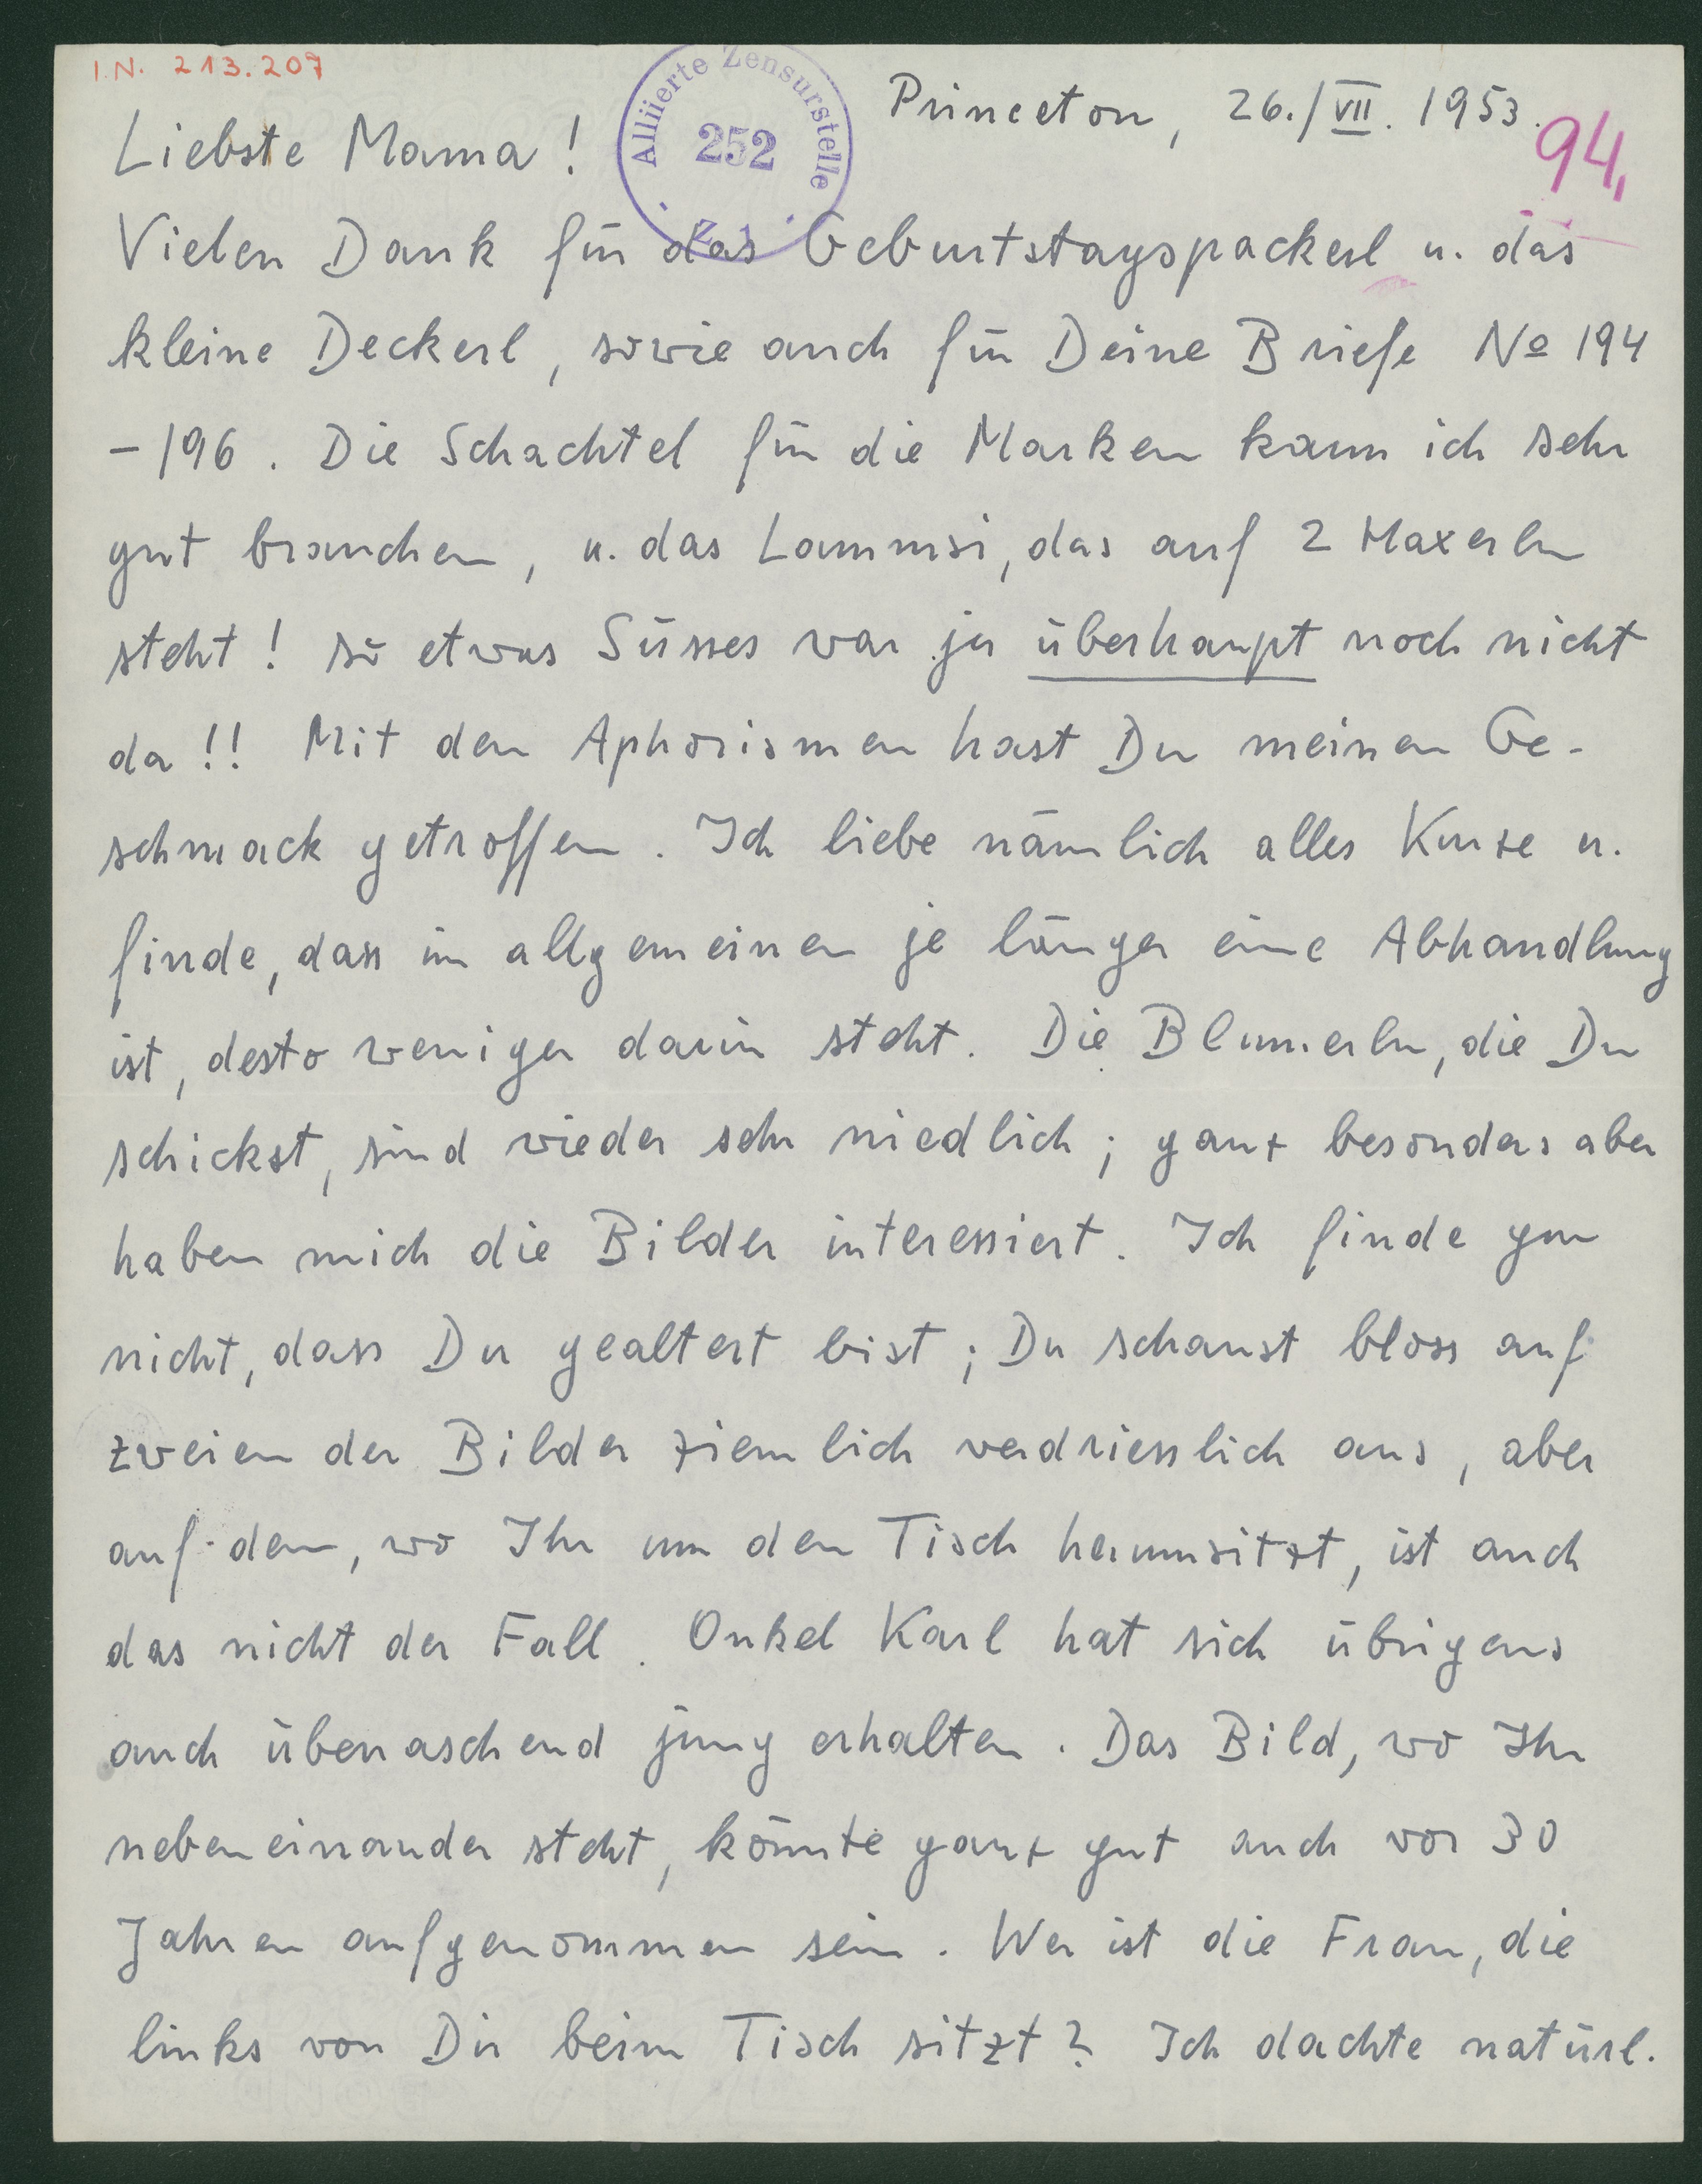 I.N. 213.207
Alliierte Zensurstelle
252
Princeton, 26./VII. 1953.
94,
Liebste Mama!
Vielen Dank für das Geburtstagspackerl u. das
kleine Deckerl, sowie auch für Deine Briefe No 194
–196. Die Schachtel für die Marken kann ich sehr
gut brauchen, u. das Lammsi, das auf 2 Haxerln
steht! so etwas Süsses war ja überhaupt noch nicht
da!! Mit den Aphorismen hast Du meinen Ge-
schmack getroffen. Ich liebe nämlich alles Kurze u.
finde, dass im allgemeinen je länger eine Abhandlung
ist, desto weniger darin steht. Die Blumerln, die Du
schickst, sind wieder sehr niedlich; ganz besonders aber
haben mich die Bilder interessiert. Ich finde gar
nicht, dass Du gealtert bist; Du schaust bloss auf
zweien der Bilder ziemlich verdriesslich aus, aber
auf dem, wo Ihr um den Tisch herumsitzt, ist auch
das nicht der Fall. Onkel Karl hat sich übrigens
auch überraschend jung erhalten. Das Bild, wo Ihr
nebeneinander steht, könnte ganz gut auch vor 30
Jahren aufgenommen sein. Wer ist die Frau, die
links von Dir beim Tisch sitzt? Ich dachte natürl.